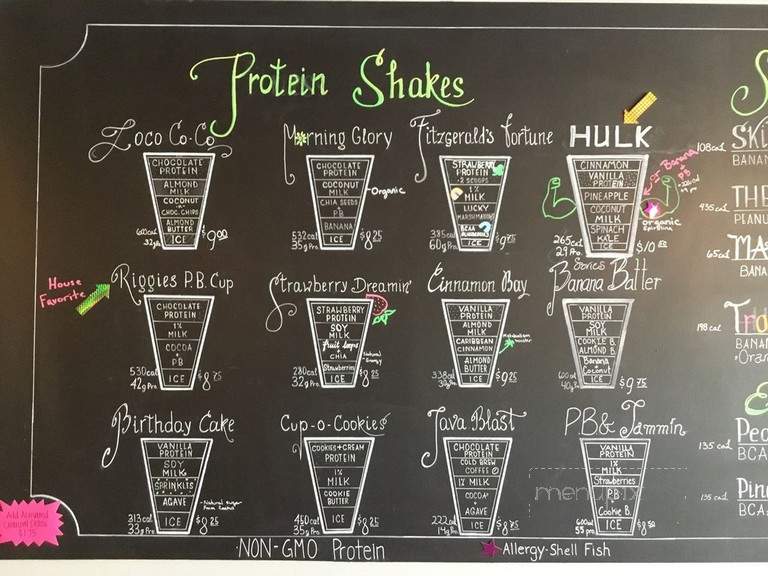 Protein Shakes
Loco Co-Co
CHOCOLATE PROTEIN
ALMOND MILK
COCONUT
CHOC. CHIPS
ALMOND BUTTER
ICE
$9.00
Morning Glory
CHOCOLATE PROTEIN
COCONUT MILK
Organic
CHIA SEEDS
PB
BANANA
ICE
532 cal
35g Pro
$8.25
Fitzgerald's fortune
STRAWBERRY PROTEIN
2 SCOOPS
1% MILK
LUCKY MARSHMALLOWS
ICE
385 cal
60g Pro
$9.75
HULK
CINNAMON
VANILLA PROTEIN
PINEAPPLE
COCONUT MILK
SPINACH
KALE
ICE
265 cal
29 Pro.
Banana
PB
organic
Spirulina
House Favorite
Riggies P.B. Cup
CHOCOLATE PROTEIN
1% MILK
COCOA
+
PB
ICE
530 cal
42g Pro
$8.75
Strawberry Dreamin'
STRAWBERRY PROTEIN
SOY MILK
fruit loops
+
CHIA
Strawberries
ICE
280 cal
32g Pro
$8.25
Cinnamon Bay
VANILLA PROTEIN
ALMOND MILK
CARIBBEAN CINNAMON
ALMOND BUTTER
ICE
338 cal
$9.25
Banana Batter
VANILLA PROTEIN
SOY MILK
COOKIE B.
ALMOND B.
Banana
Coconut
ICE
$9.75
Birthday Cake
VANILLA PROTEIN
SOY MILK
SPRINKLES
AGAVE
ICE
313 cal
33g Pro
$8.25
Cup-o-Cookies
COOKIES+CREAM PROTEIN
1% MILK
COOKIE BUTTER
ICE
460 cal
35g Pro
$8.25
Java Blast
CHOCOLATE PROTEIN
COLD BREW COFFEE
1% MILK
COCOA
AGAVE
ICE
222 cal
14g Pro
$8.75
PB & Jammin
VANILLA PROTEIN
1% MILK
Strawberries
PB
Cookie B.
ICE
55 pro
NON-GMO Protein
Allergy-Shell Fish
108 cal
BANAN
435 cal
THE
PEANU
65 cal
MA
BANA
198 cal
Tro
BANAN
135 cal
Pea
BCA
Pin
BCA
menupix